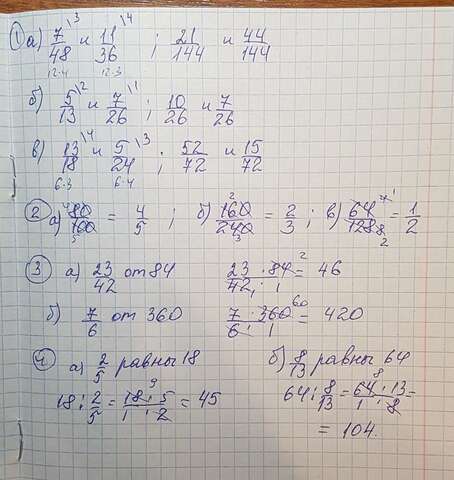 1 а) 7/48 \3 и 11/36 \4 ; 21/144 и 44/144
12·4 12·3
б) 5/13 \2 и 7/26 \1 ; 10/26 и 7/26
в) 13/18 \4 и 5/24 \3 ; 52/72 и 15/72
6·3 6·4
2 а) 80/100 = 4/5 ; б) 160/240 = 2/3 ; в) 64/128 = 1/2
3 а) 23/42 от 84 23·84/42·1 = 46
б) 7/6 от 360 7·360/6·1 = 420
4 а) 2/5 равны 18 б) 8/13 равны 64
18 : 2/5 = 18·5/1·2 = 45 64 : 8/13 = 64·13/1·8 =
= 104.